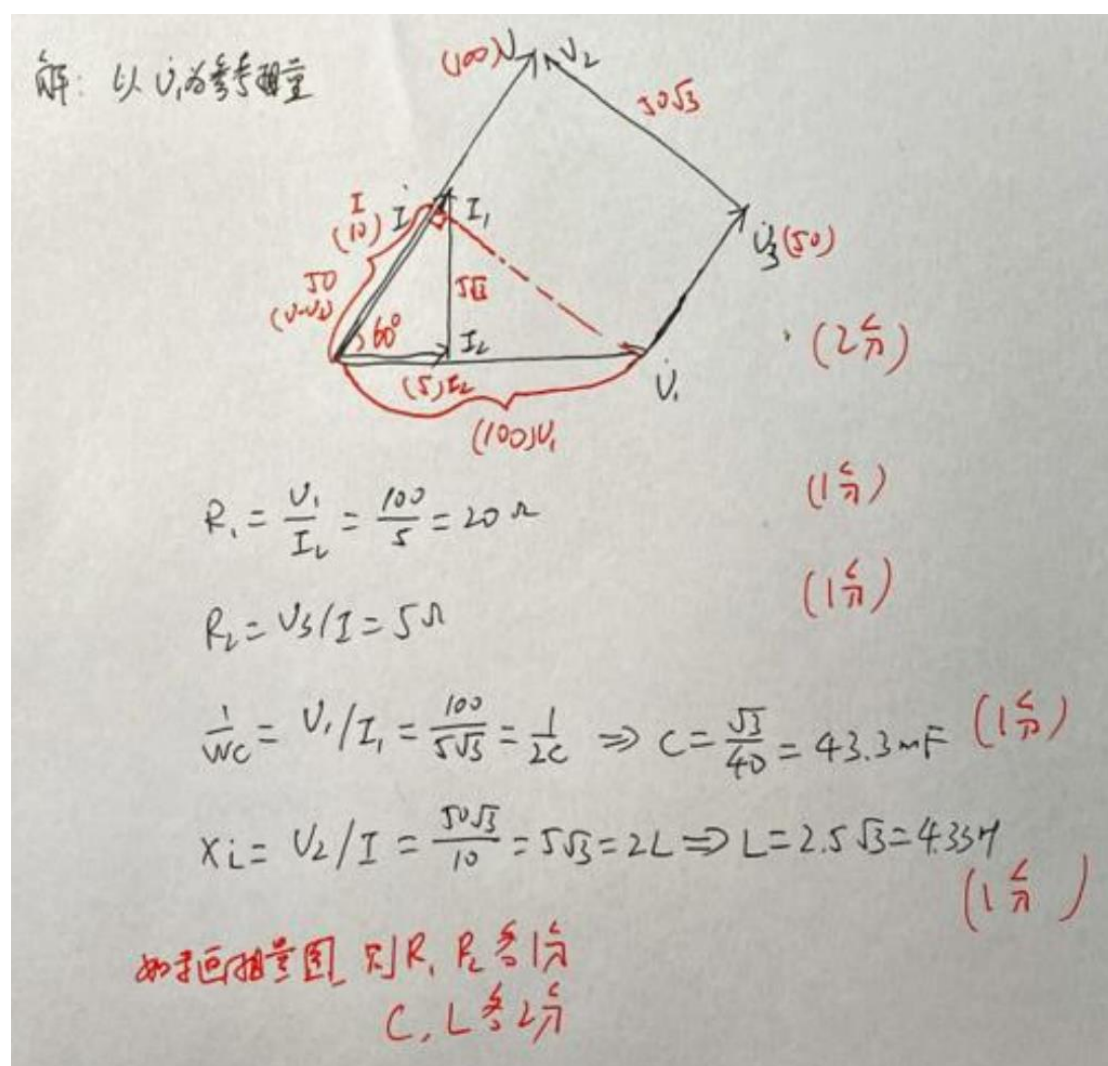 解: 以 U̇₁为参考相量
(100)U U̇₂
50√3
I (10) İ I₁
U̇₃(50)
50
(U-U₃)
5√3
60°
I₂
(2分)
(5)I₂
U̇₁
(100)U₁
R₁ = U₁/I₂ = 100/5 = 20Ω (1分)
R₂ = U₃/I = 5Ω (1分)
1/WC = U₁/I₁ = 100/5√3 = 1/2C ⇒ C = √3/40 = 43.3mF (1分)
XL = U₂/I = 50√3/10 = 5√3 = 2L ⇒ L = 2.5√3 = 4.33H
(1分)
如未画相量图 则R₁ R₂各1分
C, L各2分